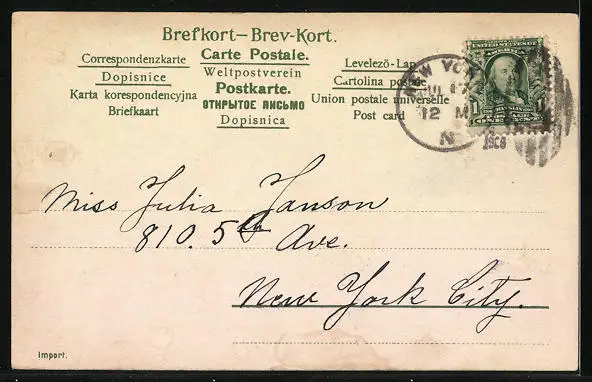 Brefkort—Brev-Kort.
Correspondenzkarte
Dopisnice
Karta korespondencyjna
Briefkaart
Carte Postale.
Weltpostverein
Postkarte.
ОТКРЫТОЕ ПИСЬМО
Dopisnica
Levelezö-Lap
Cartolina postale
Union postale universelle
Post card
NEW YORK
17
12 M
N
1908
UNITED STATES OF
FRANKLIN
1
1
Miss Julia Janson
810. 5th Ave.
New York City.
Import.